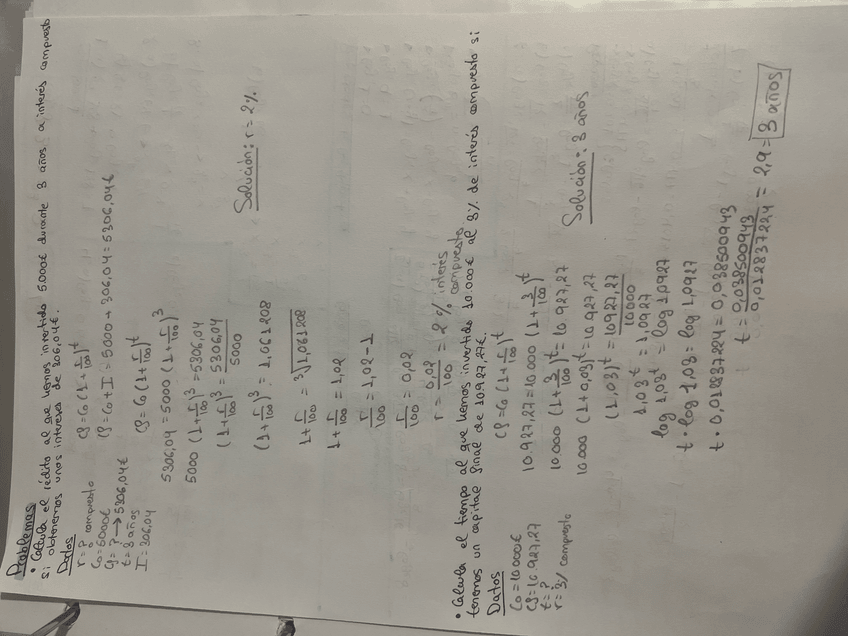 Problemas
• Calcula el rédito al que hemos invertido 5000€ durante 3 años a interés compuesto
si obtenemos unos intereses de 306,04€.
Datos
r = ? compuesto
C0 = 5000€
Cf = ? → 5306,04€
t = 3 años
I = 306,04
Cf = C0 (1 + r/100)^t
Cf = C0 + I = 5000 + 306,04 = 5306,04€
Cf = C0 (1 + r/100)^t
5306,04 = 5000 (1 + r/100)^3
5000 (1 + r/100)^3 = 5306,04
(1 + r/100)^3 = 5306,04/5000
(1 + r/100)^3 = 1,061208
1 + r/100 = ³√1,061208
1 + r/100 = 1,02
r/100 = 1,02 - 1
r/100 = 0,02
r = 0,02/100 = 2% interés compuesto
Solución: r = 2%
• Calcula el tiempo al que hemos invertido 10.000€ al 3% de interés compuesto si
tenemos un capital final de 10.927,27€.
Datos
C0 = 10000€
Cf = 10.927,27
t = ?
r = 3% compuesto
Cf = C0 (1 + r/100)^t
10.927,27 = 10.000 (1 + 3/100)^t
10.000 (1 + 3/100)^t = 10.927,27
10.000 (1 + 0,03)^t = 10.927,27
(1,03)^t = 10927,27/10000
1,03^t = 1,0927
log 1,03^t = log 1,0927
t · log 1,03 = log 1,0927
t · 0,012837224 = 0,038500943
t = 0,038500943/0,012837224 = 2,9 = 3 años
Solución: 3 años